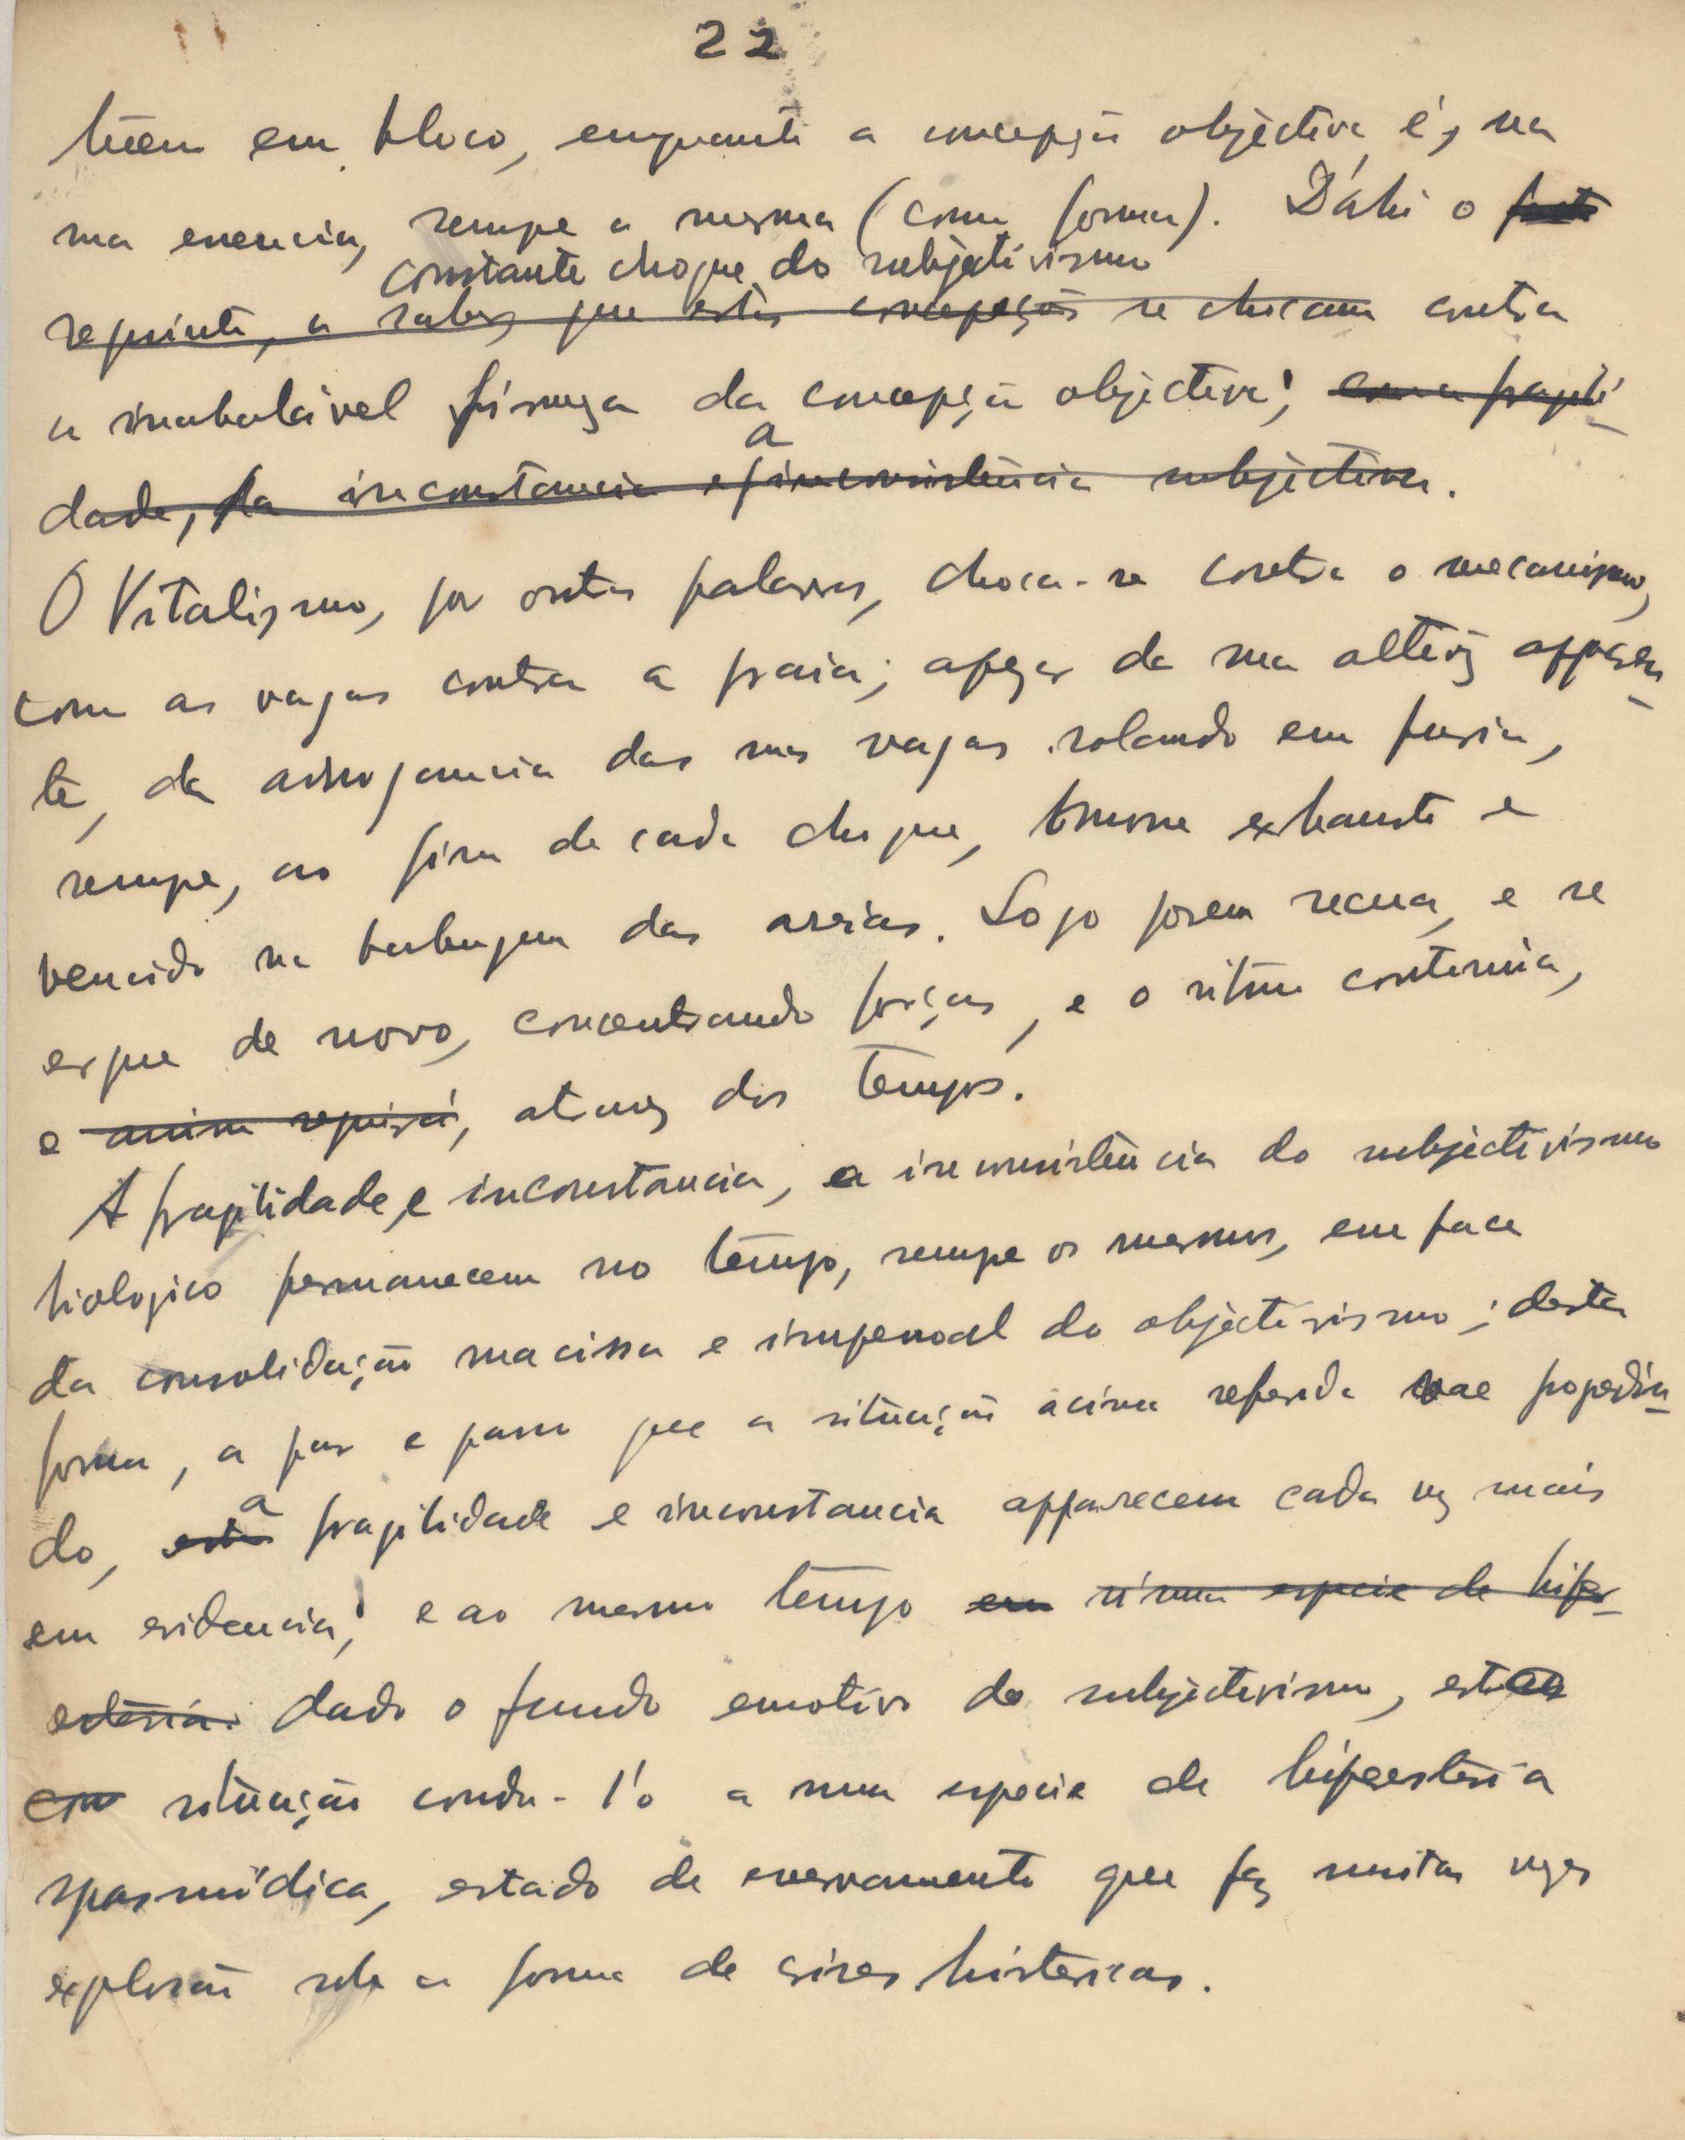 22
em bloco, emquanto a concepção objectiva é, na
sua essencia, sempre a mesma (como forma). D'áhi o facto
constante choque do subjectivismo
seguinte, a saber, que estas concepções se chocam contra
a inabalável firmeza da concepção objectiva; com a fragili-
a
dade, da inconstancia e inconsistência subjectiva.
O Vitalismo, por outras palavras, choca-se contra o mecanismo,
como as vagas contra a praia; apezar da sua altivez apparen-
te, da arrogancia das suas vagas rolando em furia,
sempre, ao fim de cada choque, morre exhausto e
vencido na babugem das areias. Logo porem recua, e se
ergue de novo, concentrando forças, e o ritmo continúa,
e assim seguirá, atravez dos tempos.
A fragilidade, e inconstancia, a inconsistência do subjectivismo
biologico permanecem no tempo, sempre os mesmos, em face
da consolidação macissa e impessoal do objectivismo; desta
forma, a par e passo que a situação acima referida vae progredin-
do, esta a fragilidade e inconstancia apparecem cada vez mais
em evidencia; e ao mesmo tempo em n'uma especie de hiper-
estesia. dado o fundo emotivo do subjectivismo, esta
com situação condu-l'o a uma especie de hiperestesia
spasmódica, estado de enervamento que faz muitas vezes
explosão sob a forma de crises histericas.